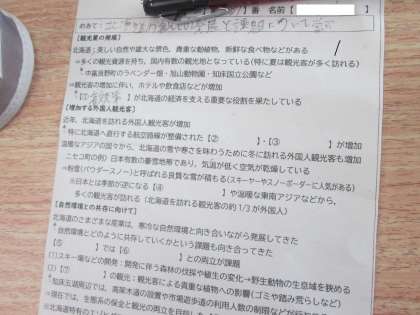 番 名前【
めあて：北海道の観光の発展と課題について学ぶ
【観光業の発展】
北海道：美しい自然や雄大な景色、貴重な動植物、新鮮な食べ物などがある
⇒多くの観光資源を持ち、国内有数の観光地となっている（特に夏は観光客が多く訪れる）
＊中富良野町のラベンダー畑・旭山動物園・知床国立公園など
観光客の増加に伴い、ホテルや飲食店などが増加
が北海道の経済を支える重要な役割を果たしている
【増加する外国人観光客】
近年、北海道を訪れる外国人観光客が増加
＊特に北海道へ直行する航空路線が整備された【② 】・【③ 】が増加
温暖なアジアの国々から、北海道の雪や寒さを味わうために冬に訪れる外国人観光客も増加
ニセコ町の例）日本有数の豪雪地帯であり、気温が低く空気が乾燥している
⇒粉雪（パウダースノー）と呼ばれる良質な雪が積もる（スキーヤーやスノーボーダーに人気がある）
※日本とは季節が逆になる【④ 】や温暖な東南アジアなどから、
多くの観光客が訪れる（北海道を訪れる観光客の約1/3が外国人）
【自然環境との共存に向けて】
北海道のさまざまな産業は、寒冷な自然環境と向き合いながら発展してきた
自然環境とどのように共存していくかという課題も向き合ってきた
【⑤ 】では【⑥ 】との両立が課題
(1)スキー場などの開発：開発に伴う森林の伐採や植生の変化→野生動物の生息域を狭める
(2)【⑦ 】の観光：観光客による貴重な植物への影響（ゴミや踏み荒らしなど）
＊知床五湖周辺では、高架木道の設置や市場遊歩道の利用人数の制限などが
⇒現在では、生態系の保全と観光の両立を目指した
北海道特有の